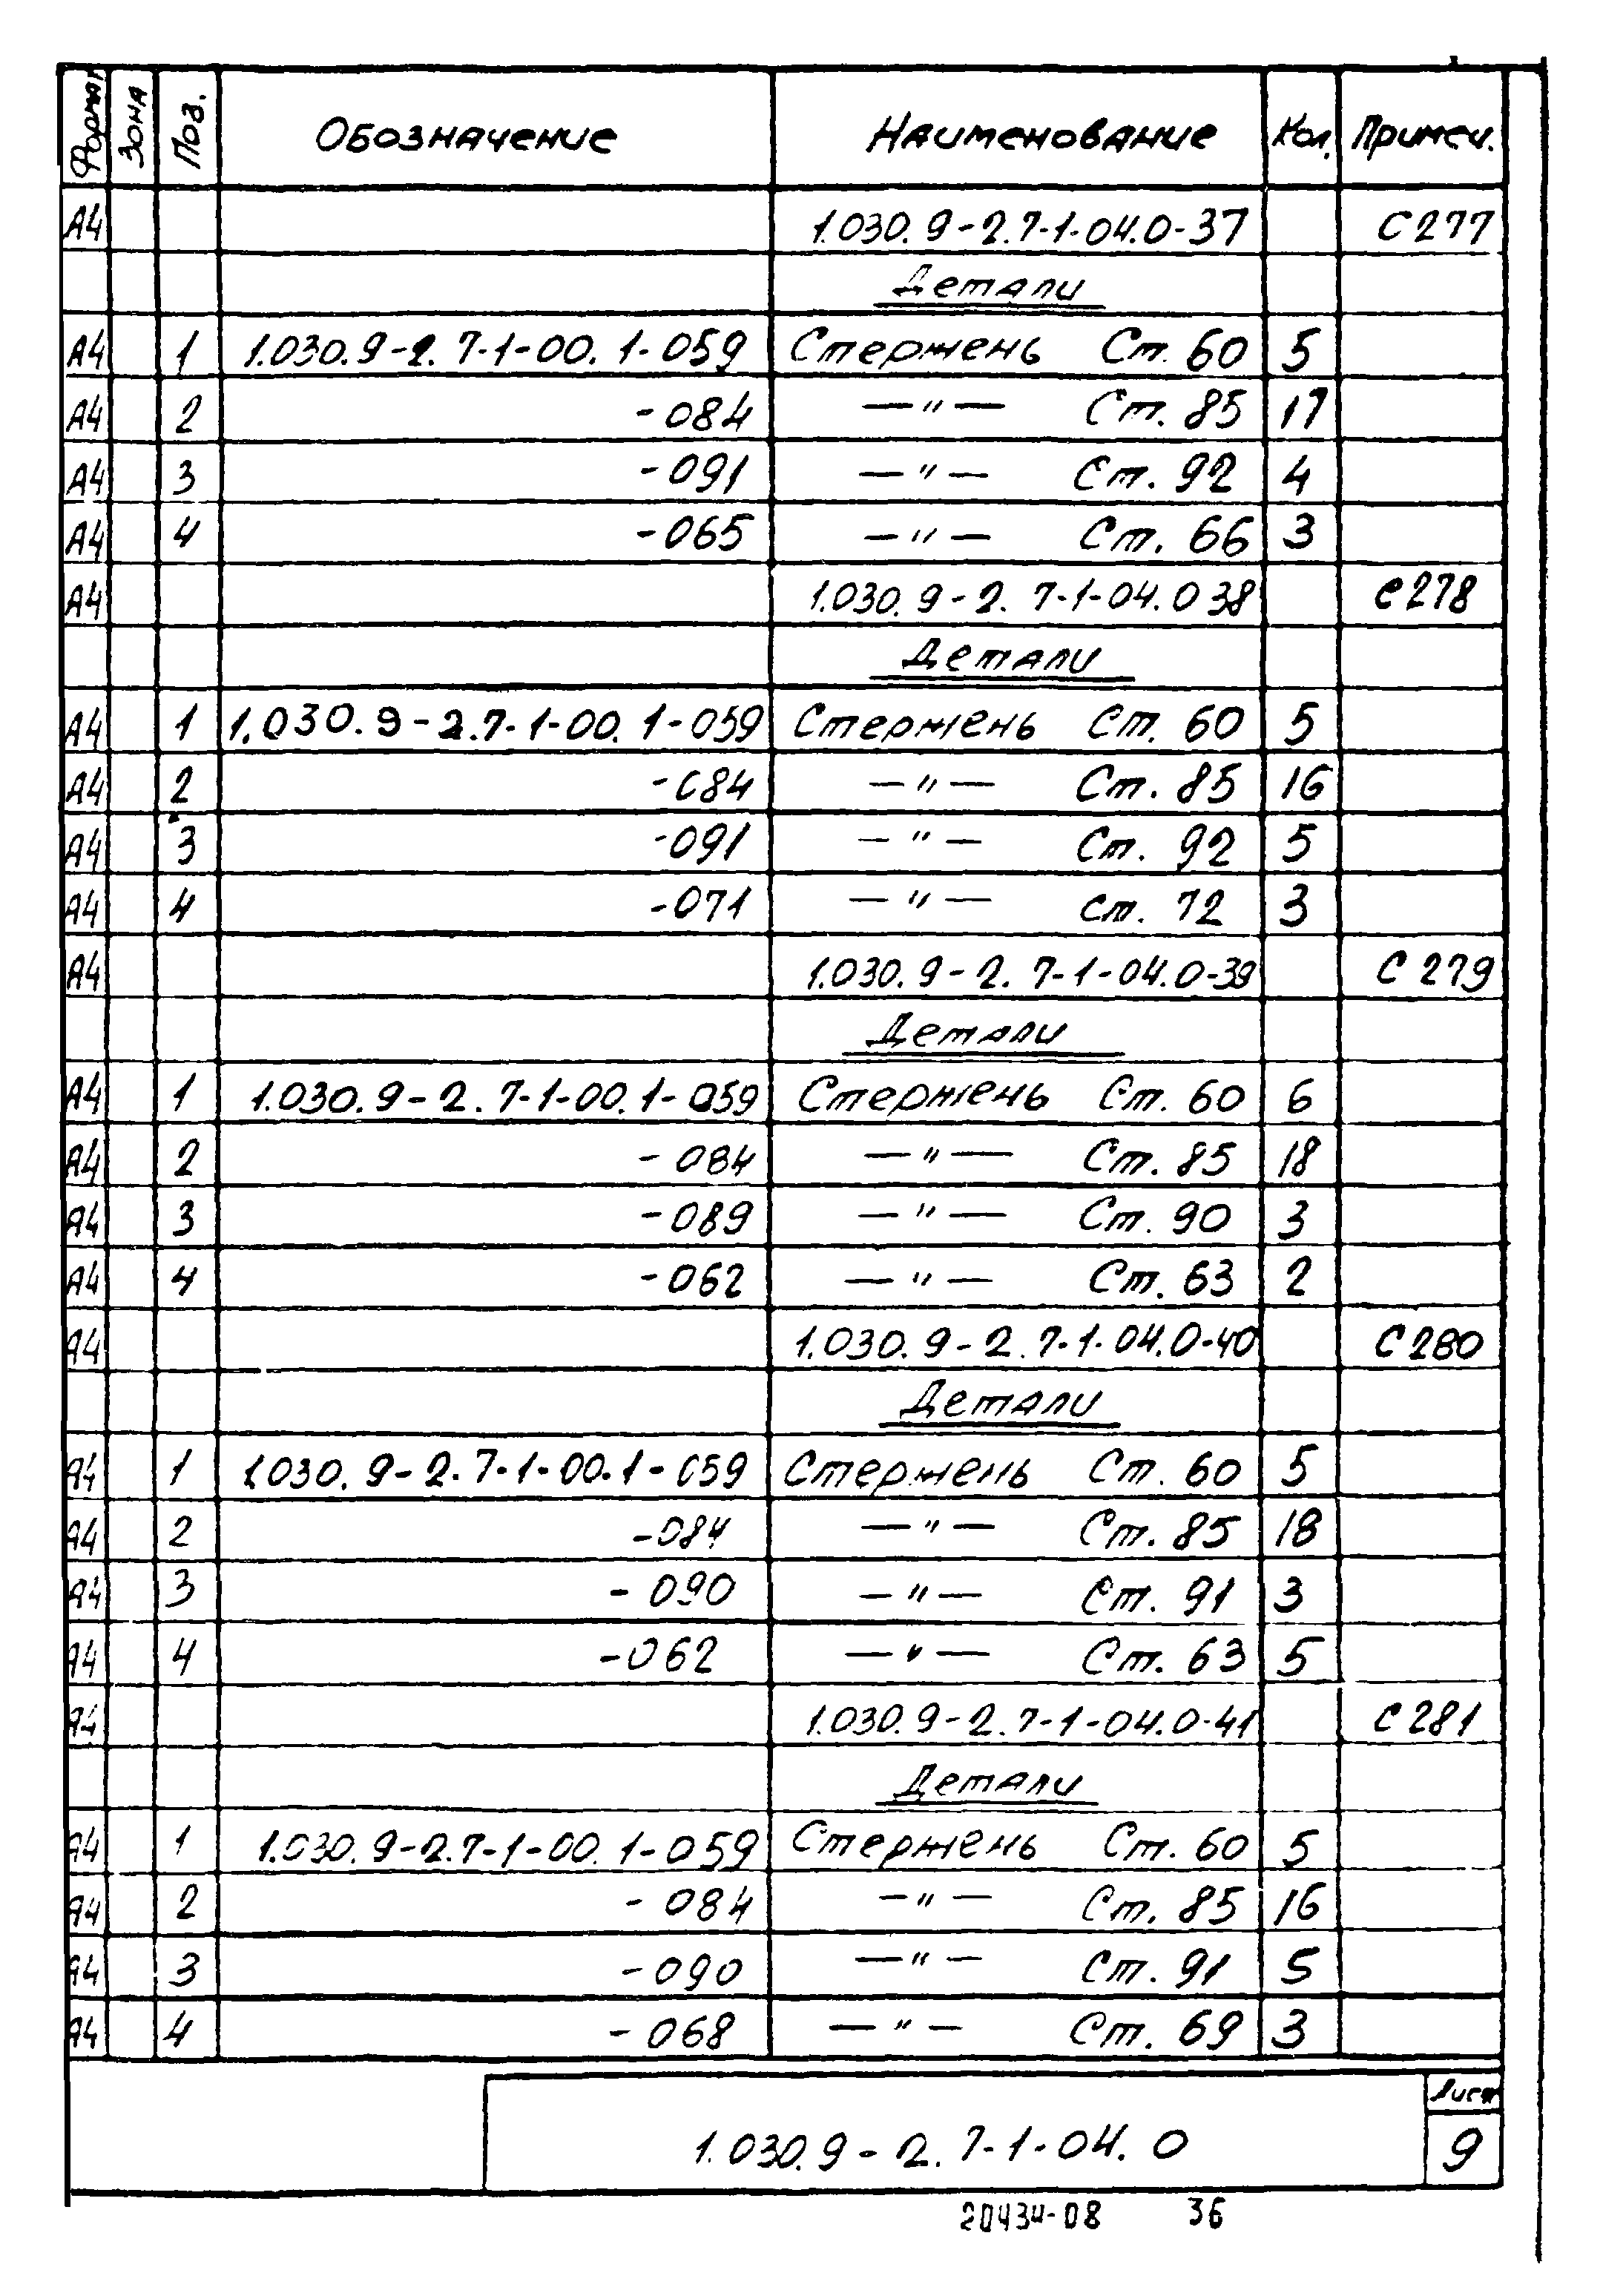 Формат Зона Поз. Обозначение Наименование Кол. Примеч.
А4 1.030.9-2.7-1-04.0-37 С 277
Детали
А4 1 1.030.9-2.7-1-00.1-059 Стержень Ст. 60 5
А4 2 -084 —〃— Ст. 85 17
А4 3 -091 —〃— Ст. 92 4
А4 4 -065 —〃— Ст. 66 3
А4 1.030.9-2.7-1-04.0 38 С 278
Детали
А4 1 1.030.9-2.7-1-00.1-059 Стержень Ст. 60 5
А4 2 -084 —〃— Ст. 85 16
А4 3 -091 —〃— Ст. 92 5
А4 4 -071 —〃— ст. 72 3
А4 1.030.9-2.7-1-04.0-39 С 279
Детали
А4 1 1.030.9-2.7-1-00.1-059 Стержень Ст. 60 6
А4 2 -084 —〃— Ст. 85 18
А4 3 -089 —〃— Ст. 90 3
А4 4 -062 —〃— Ст. 63 2
А4 1.030.9-2.7-1-04.0-40 С 280
Детали
А4 1 1.030.9-2.7-1-00.1-059 Стержень Ст. 60 5
А4 2 -084 —〃— Ст. 85 18
А4 3 -090 —〃— Ст. 91 3
А4 4 -062 —〃— Ст. 63 5
А4 1.030.9-2.7-1-04.0-41 С 281
Детали
А4 1 1.030.9-2.7-1-00.1-059 Стержень Ст. 60 5
А4 2 -084 —〃— Ст. 85 16
А4 3 -090 —〃— Ст. 91 5
А4 4 -068 —〃— Ст. 69 3
1.030.9-2.7-1-04.0 Лист 9
20434-08 36